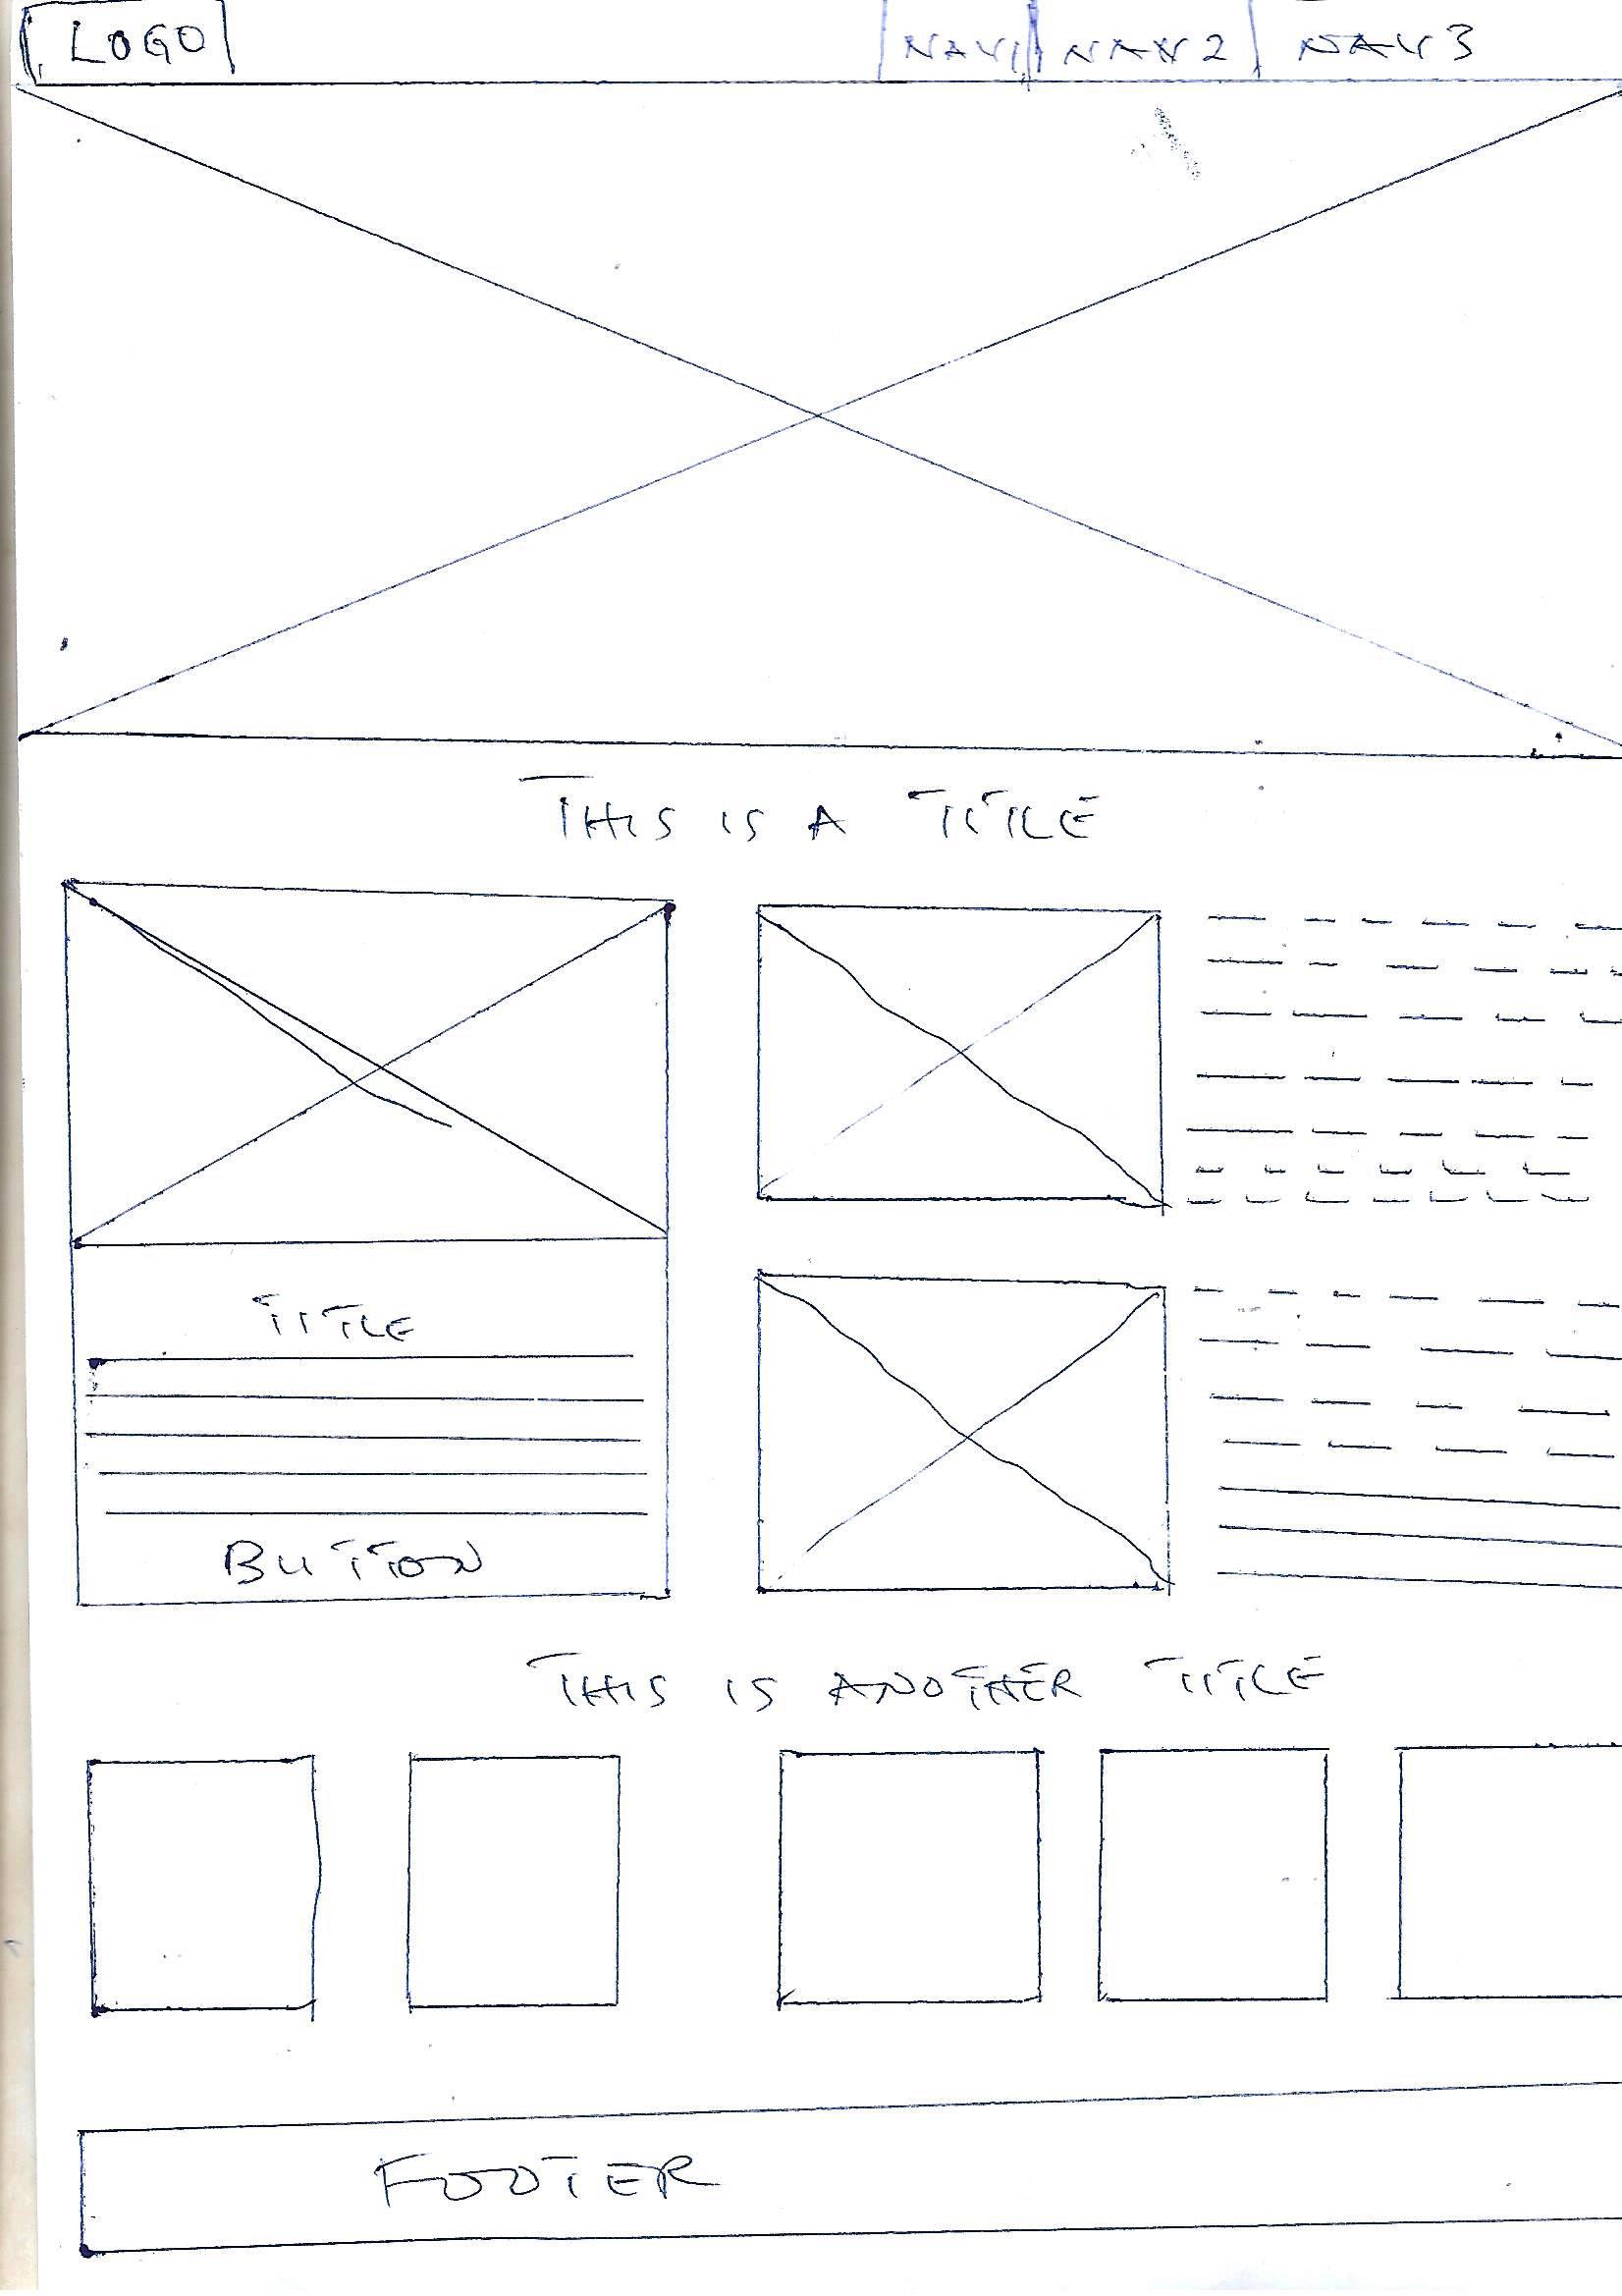 LOGO
NAV1 NAV2 NAV3
THIS IS A TITLE
TITLE
BUTTON
THIS IS ANOTHER TITLE
FOOTER